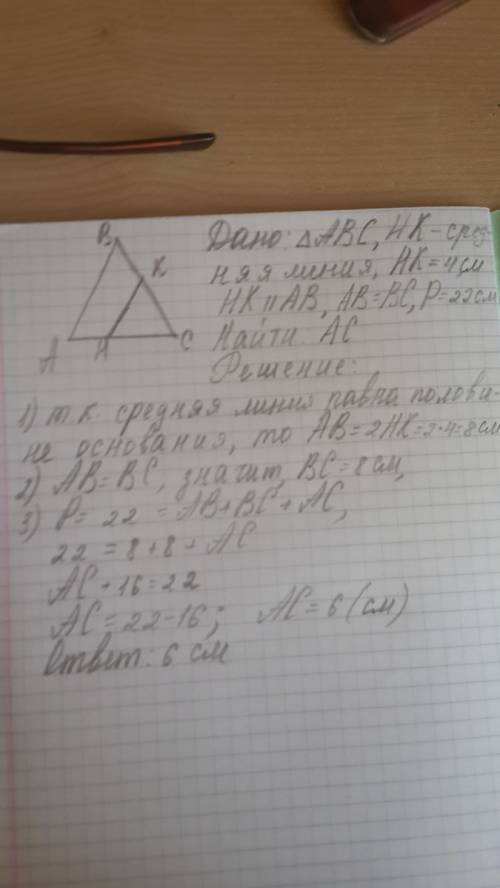 B
K
A
H
C
Дано: △ABC, HK - сред-
няя линия, HK = 4 см
HK || AB, AB = BC, P = 22 см
Найти: AC
Решение:
1) т.к. средняя линия равна полови-
не основания, то AB = 2HK = 2·4 = 8 см
2) AB = BC, значит, BC = 8 см,
3) P = 22 = AB + BC + AC,
22 = 8 + 8 + AC
AC + 16 = 22
AC = 22 - 16; AC = 6 (см)
Ответ: 6 см